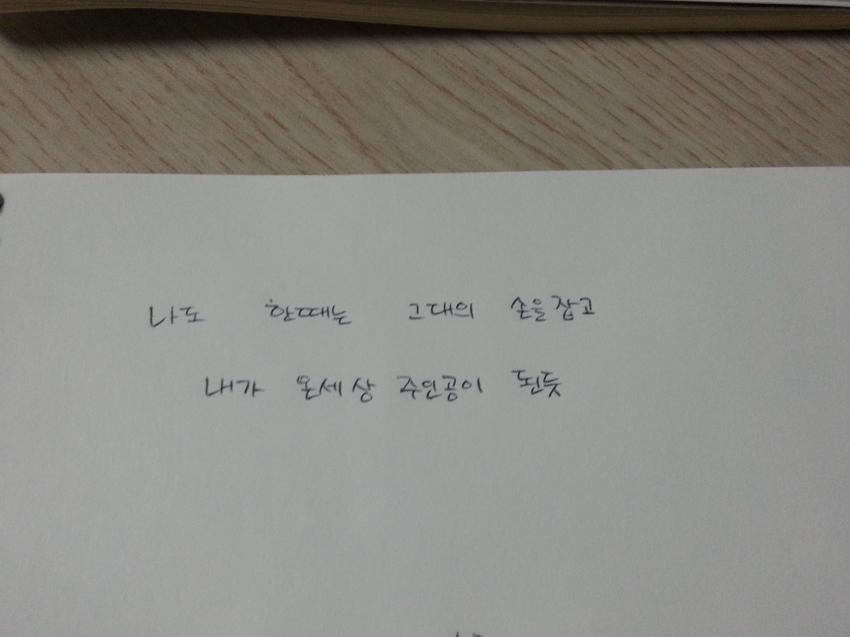 나도 한때는 그대의 손을잡고
내가 온세상 주인공이 된듯